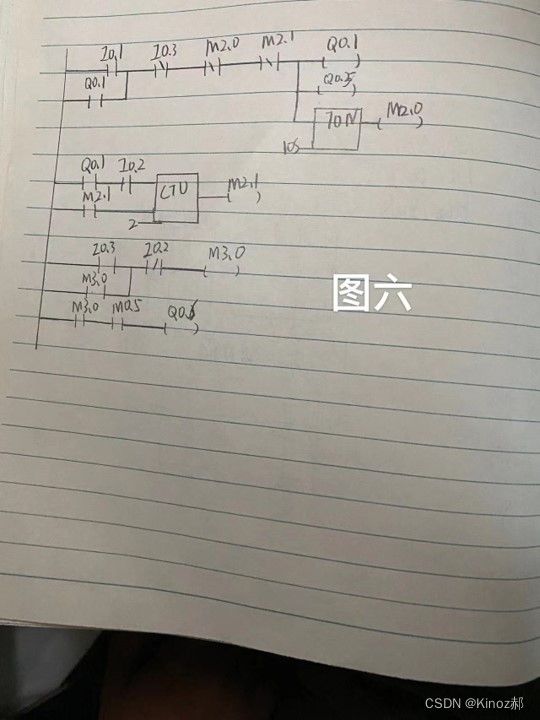 I0.1 I0.3 M2.0 M2.1 Q0.1
Q0.1 Q0.5
TON M2.0
10S
Q0.1 I0.2
CTU M2.1
M2.1
2
I0.3 I0.2 M3.0
M3.0
图六
M3.0 M0.5 Q0.6
CSDN @Kinoz郝